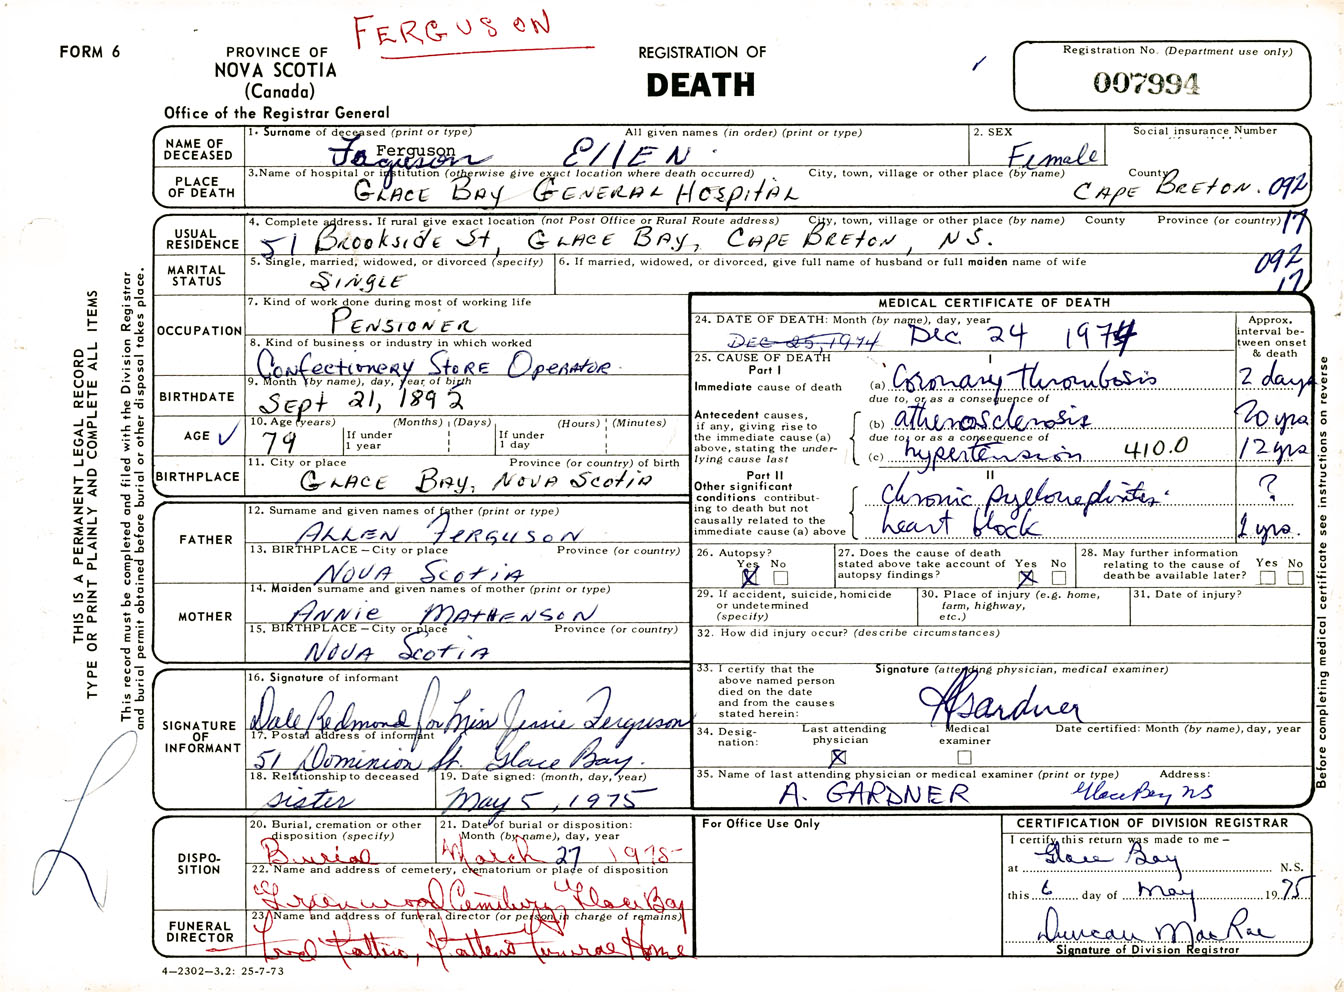 FERGUSON
FORM 6
PROVINCE OF
NOVA SCOTIA
(Canada)
Office of the Registrar General
REGISTRATION OF
DEATH
Registration No. (Department use only)
007994
NAME OF DECEASED
1. Surname of deceased (print or type) All given names (in order) (print or type)
Ferguson
Ferguson ELLEN
2. SEX
Female
Social insurance Number
PLACE OF DEATH
3. Name of hospital or institution (otherwise give exact location where death occurred) City, town, village or other place (by name) County
GLACE BAY GENERAL HOSPITAL CAPE BRETON. 092
17
USUAL RESIDENCE
4. Complete address. If rural give exact location (not Post Office or Rural Route address) City, town, village or other place (by name) County Province (or country)
51 Brookside St, GLACE BAY, CAPE BRETON, NS.
092
17
MARITAL STATUS
5. Single, married, widowed, or divorced (specify)
SINGLE
6. If married, widowed, or divorced, give full name of husband or full maiden name of wife
OCCUPATION
7. Kind of work done during most of working life
PENSIONER
8. Kind of business or industry in which worked
Confectionery STORE OPERATOR.
BIRTHDATE
9. Month (by name), day, year of birth
SEPT 21, 1892
AGE
10. Age (years) (Months) (Days) (Hours) (Minutes)
79 If under 1 year If under 1 day
BIRTHPLACE
11. City or place Province (or country) of birth
GLACE BAY, NOVA SCOTIA
FATHER
12. Surname and given names of father (print or type)
ALLEN FERGUSON
13. BIRTHPLACE – City or place Province (or country)
NOVA SCOTIA
MOTHER
14. Maiden surname and given names of mother (print or type)
ANNIE MATHENSON
15. BIRTHPLACE – City or place Province (or country)
NOVA SCOTIA
SIGNATURE OF INFORMANT
16. Signature of informant
Dale Redmond for Miss Jessie Ferguson
17. Postal address of informant
51 Dominion St. Glace Bay.
18. Relationship to deceased
sister
19. Date signed: (month, day, year)
May 5, 1975
DISPO-SITION
20. Burial, cremation or other disposition (specify)
Burial
21. Date of burial or disposition: Month (by name), day, year
March 27 1975
22. Name and address of cemetery, crematorium or place of disposition
Greenwood Cemetery Glace Bay
FUNERAL DIRECTOR
23. Name and address of funeral director (or person in charge of remains)
Patten Funeral Home
4–2302–3.2: 25-7-73
MEDICAL CERTIFICATE OF DEATH
24. DATE OF DEATH: Month (by name), day, year
DEC 25, 1974 Dec. 24 1974
Approx. interval between onset & death
25. CAUSE OF DEATH
Part I I
Immediate cause of death (a) Coronary thrombosis 2 days
due to, or as a consequence of
Antecedent causes, if any, giving rise to the immediate cause (a) above, stating the underlying cause last
(b) atherosclerosis 20 yrs
due to, or as a consequence of
(c) hypertension 410.0 12 yrs
Part II II
Other significant conditions contributing to death but not causally related to the immediate cause (a) above
chronic pyelonephritis. ?
heart block 2 yrs.
26. Autopsy?
Yes No
X
27. Does the cause of death stated above take account of autopsy findings?
Yes No
X
28. May further information relating to the cause of death be available later?
Yes No
29. If accident, suicide, homicide or undetermined (specify)
30. Place of injury (e.g. home, farm, highway, etc.)
31. Date of injury?
32. How did injury occur? (describe circumstances)
33. I certify that the above named person died on the date and from the causes stated herein:
Signature (attending physician, medical examiner)
A Gardner
34. Designation: Last attending physician Medical examiner
X
Date certified: Month (by name), day, year
35. Name of last attending physician or medical examiner (print or type) Address:
A. GARDNER Glace Bay NS
For Office Use Only
CERTIFICATION OF DIVISION REGISTRAR
I certify this return was made to me –
at Glace Bay N.S.
this 6 day of May 1975
Duncan MacRae
Signature of Division Registrar
THIS IS A PERMANENT LEGAL RECORD
TYPE OR PRINT PLAINLY AND COMPLETE ALL ITEMS
This record must be completed and filed with the Division Registrar
and burial permit obtained before burial or other disposal takes place.
Before completing medical certificate see instructions on reverse